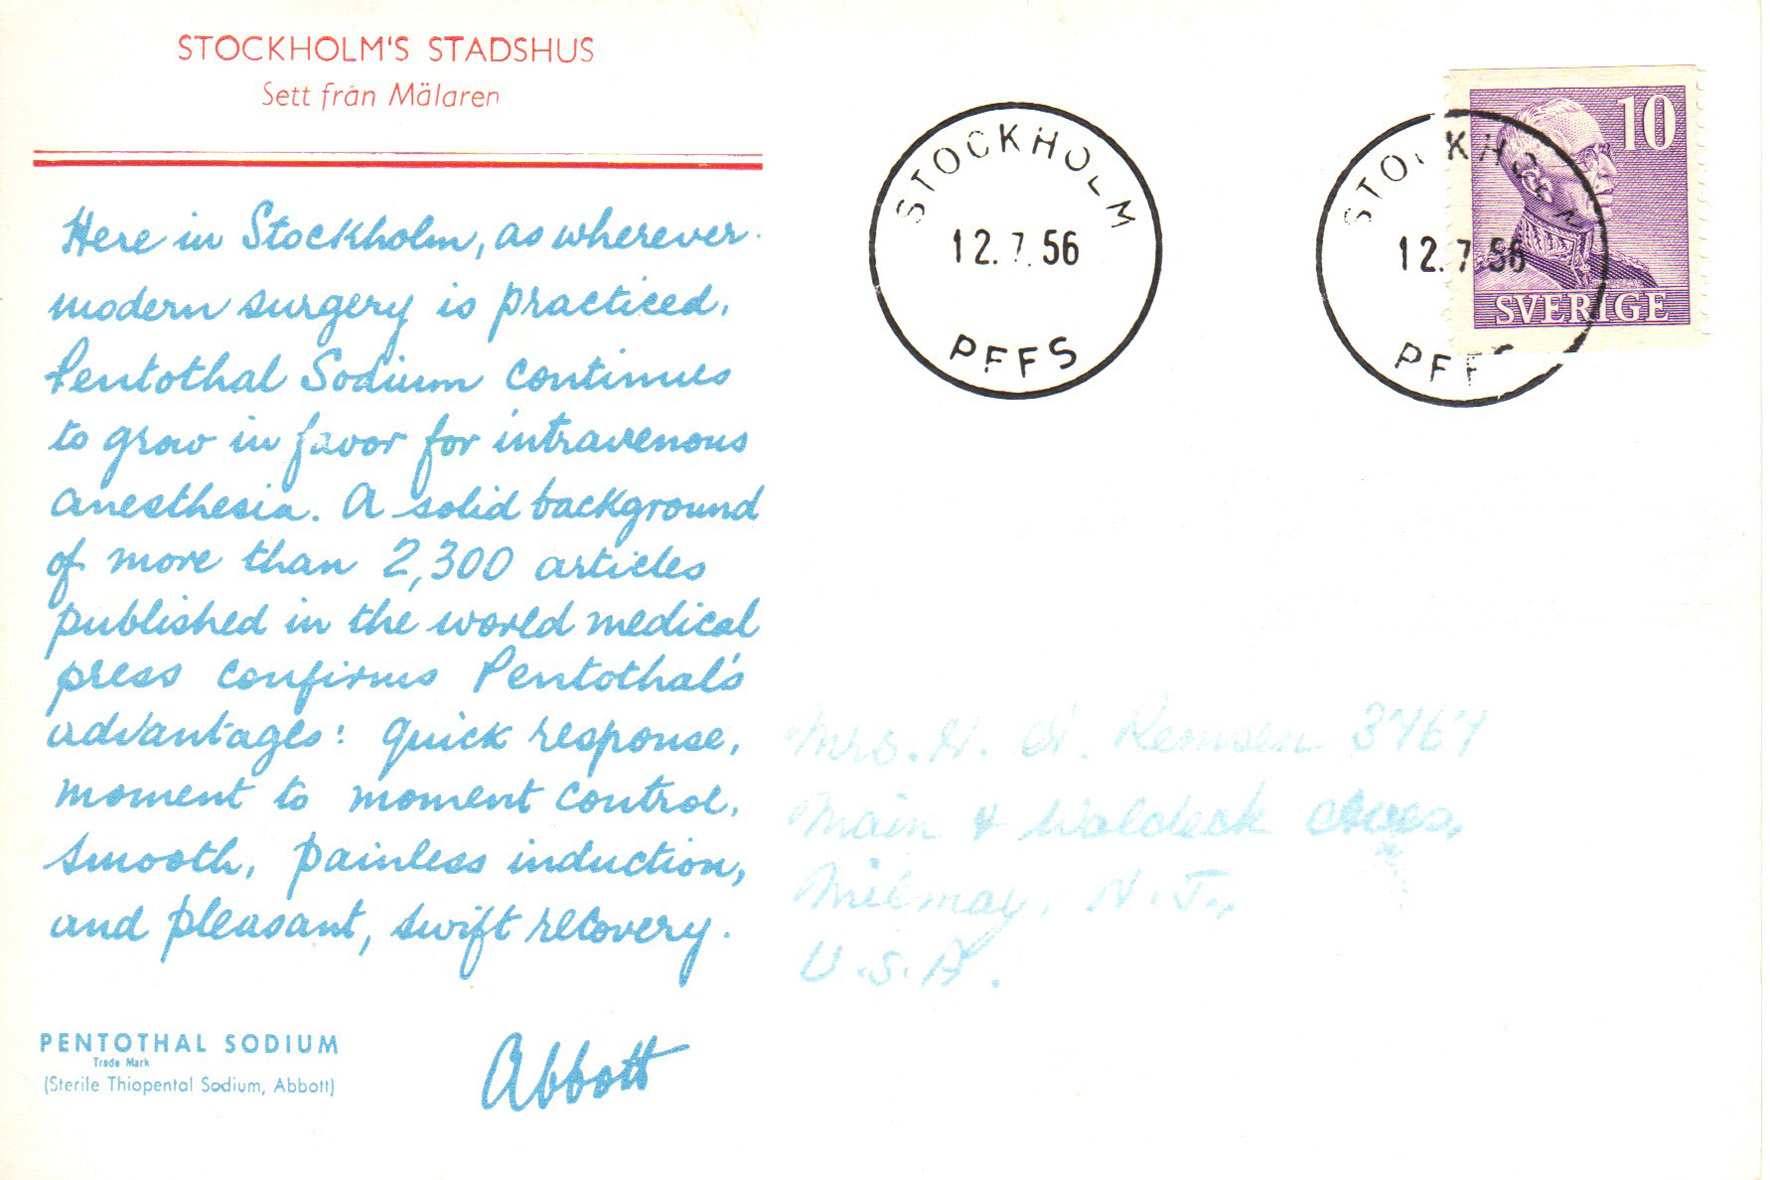 STOCKHOLM'S STADSHUS
Sett från Mälaren
Here in Stockholm, as wherever
modern surgery is practiced,
Pentothal Sodium continues
to grow in favor for intravenous
anesthesia. A solid background
of more than 2,300 articles
published in the world medical
press confirms Pentothal's
advantages: quick response,
moment to moment control,
smooth, painless induction,
and pleasant, swift recovery.
PENTOTHAL SODIUM
Trade Mark
(Sterile Thiopental Sodium, Abbott)
Abbott
STOCKHOLM
12.7.56
PFFS
STOCKHOLM
12.7.56
PFFS
10
SVERIGE
Mrs. H. Remsen 3767
Main & Waldeck Aves,
Milmay, N.J.,
U.S.A.